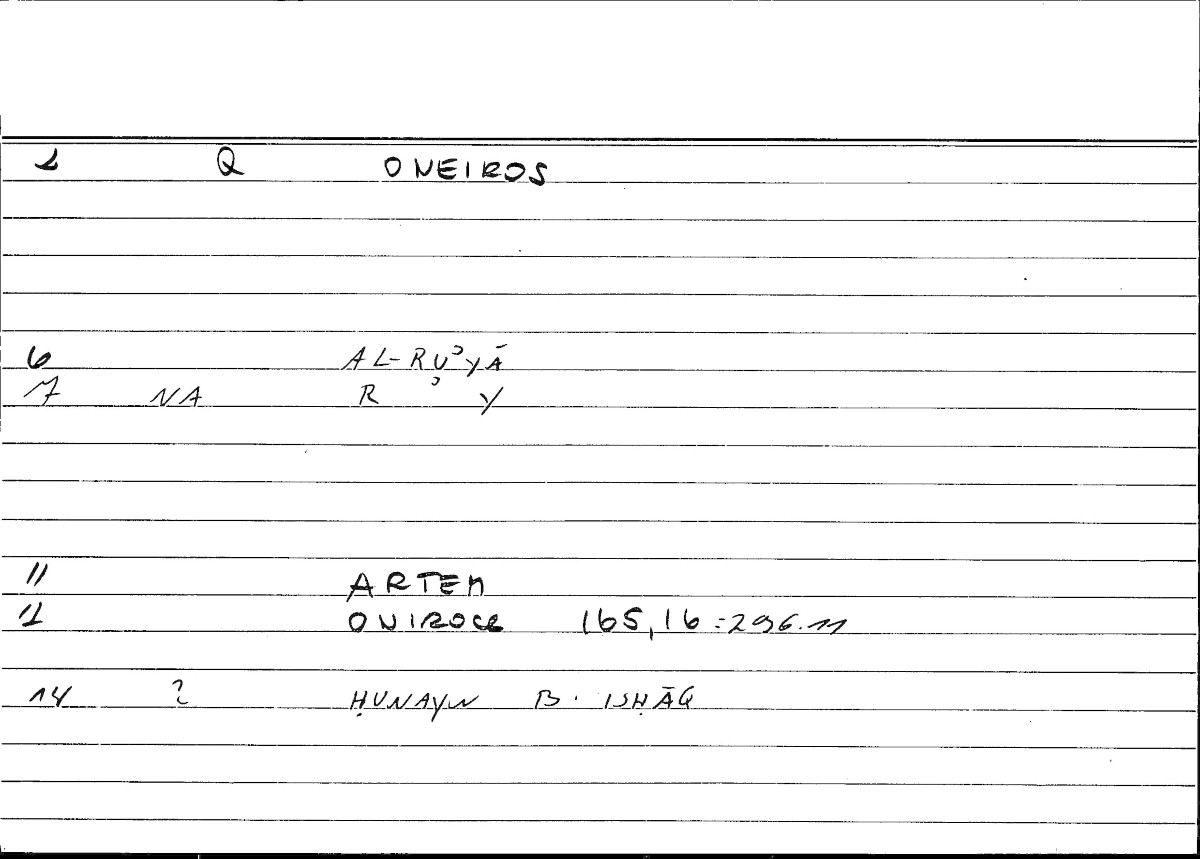 1 Q ONEIROS
6 AL-RUʾYĀ
7 NA R ʾ Y
11 ARTEM
12 ONIROCR 165,16 = 296.11
14 2 ḤUNAYN B. ISḤĀQ